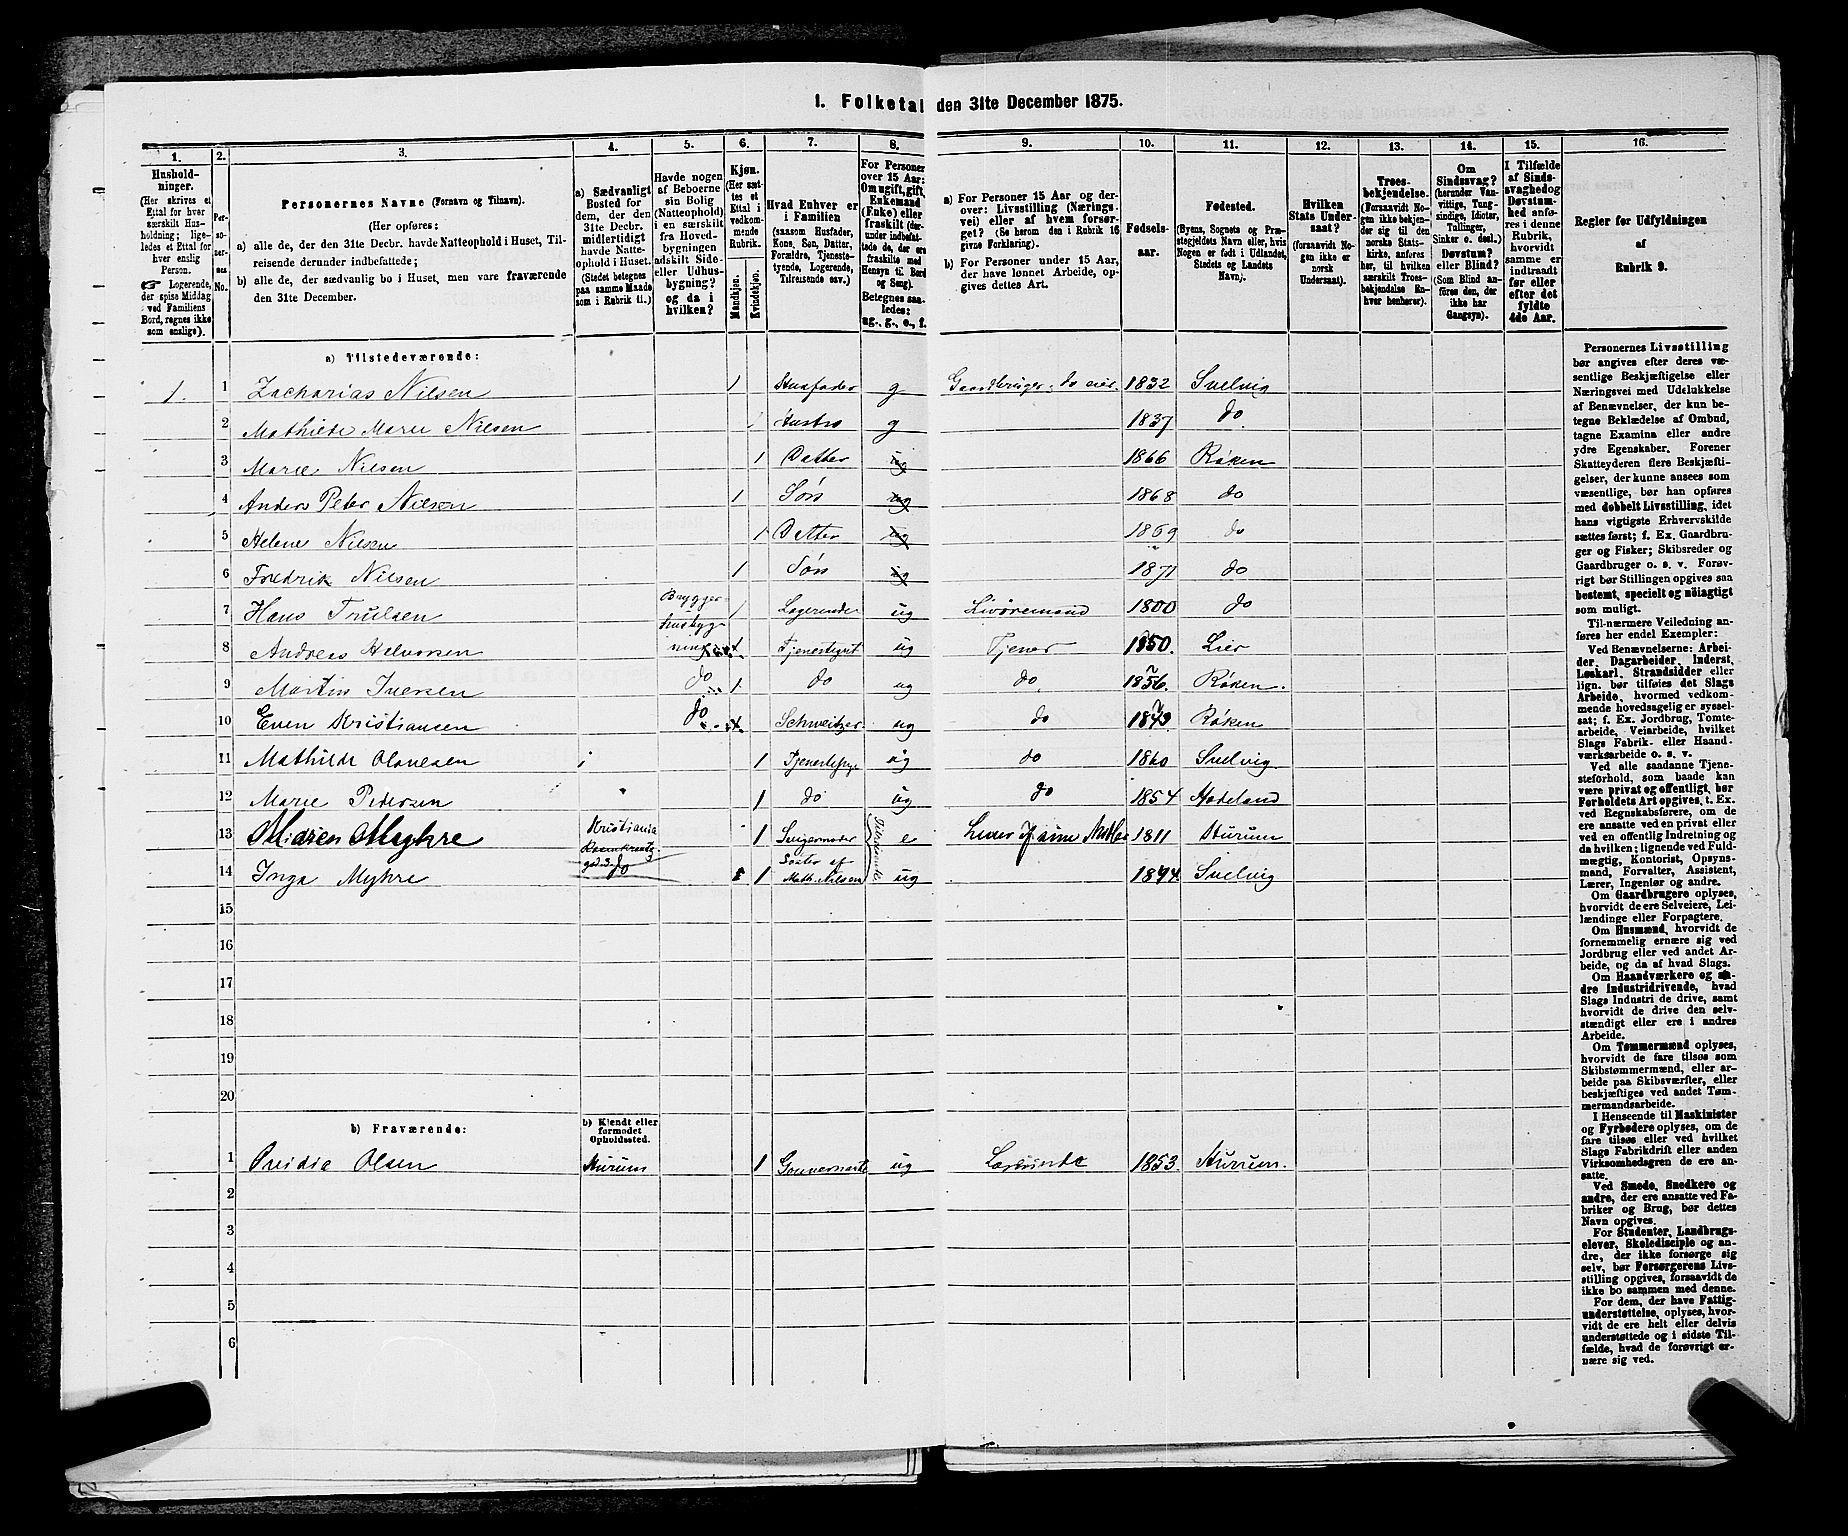 1. Folketal den 31te December 1875.
1. 2. 3. 4. 5. 6. 7. 8. 9. 10. 11. 12. 13. 14. 15. 16.
Hushold-
ninger.
(Her skrives et
Ettal for hver
særskilt Hus-
holdning; lige-
ledes et Ettal for
hver enslig
Person.
☞ Logerende,
der spise Middag
ved Familiens
Bord, regnes ikke
som enslige).
Per-
so-
ner-
nes
No.
Personernes Navne (Fornavn og Tilnavn).
(Her opføres:
a) alle de, der den 31te Decbr. havde Natteophold i Huset, Til-
reisende derunder indbefattede;
b) alle de, der sædvanlig bo i Huset, men vare fraværende
den 31te December.
a) Sædvanligt
Bosted for
dem, der den
31te Decbr.
midlertidigt
havde Natte-
ophold i Huset.
(Stedet betegnes
paa samme Maade
som i Rubrik 11.)
Havde nogen
af Beboerne
sin Bolig
(Natteophold)
i en særskilt
fra Hoved-
bygningen
adskilt Side-
eller Udhus-
bygning?
og da i
hvilken?
Kjøn.
(Her sæt-
tes et
Ettal i
vedkom-
mende
Rubrik.
Mandkjøn.
Kvindekjøn.
Hvad Enhver er
i Familien
(saasom Husfader,
Kone, Søn, Datter,
Forældre, Tjeneste-
tyende, Logerende,
Tilreisende osv.)
For Personer
over 15 Aar:
Om ugift, gift,
Enkemand
(Enke) eller
fraskilt (der-
under indbefat-
tede de, der ere
fraskilte med
Hensyn til Bord
og Seng).
Betegnes saa-
ledes:
ug., g., e., f.
a) For Personer 15 Aar og der-
over: Livsstilling (Nærings-
vei) eller af hvem forsør-
get? (Se herom den i Rubrik 16
givne Forklaring).
b) For Personer under 15 Aar,
der have lønnet Arbeide, op-
gives dettes Art.
Fødsels-
aar.
Fødested.
(Byens, Sognets og Præ-
stegjeldets Navn eller, hvis
Nogen er født i Udlandet,
Stedets og Landets
Navn).
Hvilken
Stats Under-
saat?
(forsaavidt No-
gen ikke er
norsk
Undersaat).
Troes-
bekjendelse.
(Forsaavidt No-
gen ikke bekjen-
der sig til den
norske Stats-
kirke, anføres
her, til hvilken
særskilt Troes-
bekjendelse En-
hver henhører).
Om
Sindssvag?
(herunder Van-
vittige, Tung-
sindige, Idioter,
Tullinger,
Sinker o. desl.)
Døvstum?
eller Blind?
(Som Blind an-
føres den, der
ikke har
Gangsyn).
I Tilfælde
af Sinds-
svaghed og
Døvstum-
hed anfø-
res i denne
Rubrik,
hvorvidt
samme er
indtraadt
før eller
efter det
fyldte
4de Aar.
Regler for Udfyldningen
af
Rubrik 9.
a) Tilstedeværende:
1. 1 Zacharias Nilsen 1 Husfader g Gaardbruger 1832 Svelvig
2 Mathilde Marie Nilsen 1 Hustru g 1837 do
3 Marie Nilsen 1 Datter ug 1866 Røken
4 Anders Peter Nilsen 1 Søn ug 1868 do
5 Helene Nilsen 1 Datter ug 1869 do
6 Fredrik Nilsen 1 Søn ug 1871 do
7 Hans Trulsen Brygger- 1 Logerende ug Livøremand 1800 do
husbyg-
8 Andreas Helvorsen ning Tjenestegut ug Tjener 1850. Lier
9 Martin Iversen do 1. do ug do. 1856. Røken.
10 Even Kristiansen do Schweitzer ug do Røken
11 Mathilde Olavesen 1 Tjenestepige ug do 1860 Svelvig
12 Marie Pedersen 1 do ug do 1854 Hadeland
13 Myhre Kristiania 1 Svigermoder e 1811 Hurum
14 Inga Myhre do 1 Søster af
Math. Nilsen ug 1844. Svelvig
15
16
17
18
19
20
b) Fraværende:
b) Kjendt eller
formodet
Opholdssted.
1 Ovidia Olsen Hurum 1 Gouvernante ug 1853. Hurum.
2
3
4
5
6
Personernes Livsstilling
bør angives efter deres væ-
sentlige Beskjæftigelse eller
Næringsvei med Udelukkelse
af Benævnelser, der kun be-
tegne Beklædelse af Ombud,
tagne Examina eller andre
ydre Egenskaber. Forener
Skatteyderen flere Beskjæfti-
gelser, der kunne ansees som
væsentlige, bør han opføres
med dobbelt Livsstilling, idet
hans vigtigste Erhvervskilde
sættes først; f. Ex. Gaardbru-
ger og Fisker; Skibsreder og
Gaardbruger o. s. v. Forøv-
rigt bør Stillingen opgives saa
bestemt, specielt og nöiagtigt
som muligt.
Til nærmere Veiledning an-
føres her endel Exempler:
Ved Benævnelserne: Arbei-
der, Dagarbeider, Inderst,
Løskarl, Strandsidder eller
lign. bør tilføies det Slags
Arbeide, hvormed vedkom-
mende hovedsagelig er syssel-
sat; f. Ex. Jordbrug, Tomte-
arbeide, Veiarbeide, hvilket
Slags Fabrik- eller Haand-
værksarbeide o. s. v.
Ved alle saadanne Tjene-
steforhold, som baade kan
være privat og offentligt, bør
Forholdets Art opgives, t. Ex.
ved Regnskabsførere, om de
ere ansatte ved en privat eller
ved en offentlig Indretning og
da hvilken; lignende ved Fuld-
mægtig, Kontorist, Opsyns-
mand, Forvalter, Assistent,
Lærer, Ingeniør og andre.
Om Gaardbrugere oplyses,
hvorvidt de ere Selveiere, Lei-
lændinge eller Forpagtere.
Om Husmænd, hvorvidt de
fornemmelig ernære sig ved
Jordbrug eller ved andet Ar-
beide, og da af hvad Slags.
Om Haandværkere og an-
dre Industridrivende, hvad
Slags Industri de drive, samt
hvorvidt de drive den selv-
stændigt eller ere i andres
Arbeide.
Om Tømmermænd oplyses,
hvorvidt de fare tilsøs som
Skibstømmermænd, eller ar-
beide paa Skibsværfter, eller
beskjæftiges ved andet Tøm-
mermandsarbeide.
I Henseende til Maskinister
og Fyrbødere oplyses, om de
fare tilsøs eller ved hvilket
Slags Fabrikdrift eller anden
Virksomhedsgren de ere an-
satte.
Ved Smede, Snedkere og
andre, der ere ansatte ved Fa-
briker og Brug, bør dettes
Navn opgives.
For Studenter, Landbrugs-
elever, Skoledisciple og an-
dre, der ikke forsørge sig
selv, bør Forsørgerens Livs-
stilling opgives, forsaavidt de
ikke bo sammen med denne.
For dem, der have Fattig-
understøttelse, oplyses, hvor-
vidt de ere helt eller delvis
understøttede og i sidste Til-
fælde, hvad de forøvrigt er-
nære sig ved.